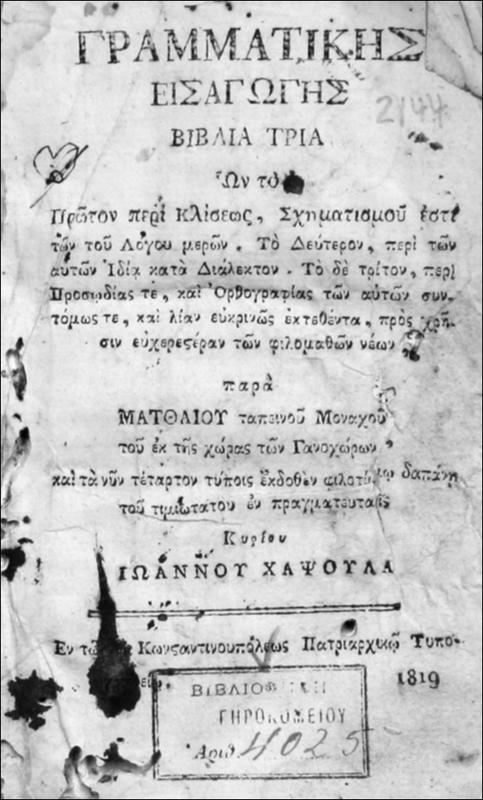 ΓΡΑΜΜΑΤΙΚΗΣ
ΕΙΣΑΓΩΓΗΣ
ΒΙΒΛΙΑ ΤΡΙΑ
2144
Ὧν το
Πρῶτον περὶ Κλίσεως, Σχηματισμοῦ ἐστὶ
τῶν τοῦ Λόγου μερῶν. Τὸ Δεύτερον, περὶ τῶν
αυτῶν Ἰδίᾳ κατὰ Διάλεκτον. Τὸ δὲ τρίτον, περὶ
Προσῳδίας τε, καὶ Ὀρθογραφίας τῶν αὐτῶν συν-
τόμως τε, καὶ λίαν εὐκρινῶς ἐκτεθέντα, πρὸς χρῆ-
σιν εὐχερεϛέραν τῶν φιλομαθῶν νέων
παρὰ
ΜΑΤΘΑΙΟΥ ταπεινοῦ Μοναχοῦ
τοῦ ἐκ τῆς χώρας τῶν Γανοχώρων
καὶ τὰ νῦν τέταρτον τύποις ἐκδοθὲν δαπάνῃ
τοῦ τιμιωτάτου ἐν πραγματευταῖς
Κυρίου
ΙΩΑΝΝΟΥ ΧΑΨΟΥΛΑ
Ἐν Κωνϛαντινουπόλεως Πατριαρχικῷ Τυπο-
1819
ΓΗΡΟΚΟΜΕΙΟΥ
Ἀριθ. 4025